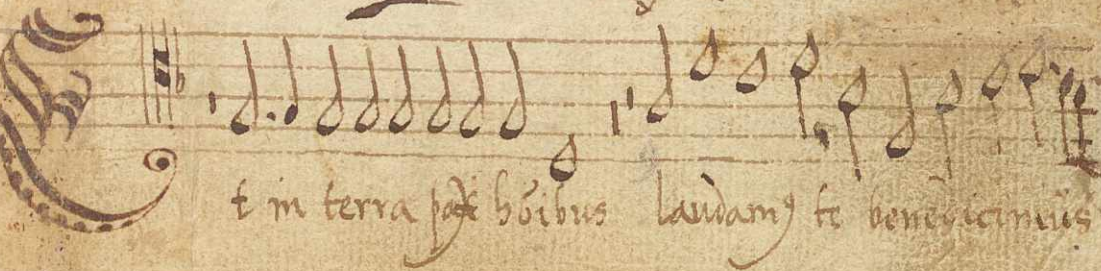 Et in terra pax hōibus laudamꝰ te benedicimus